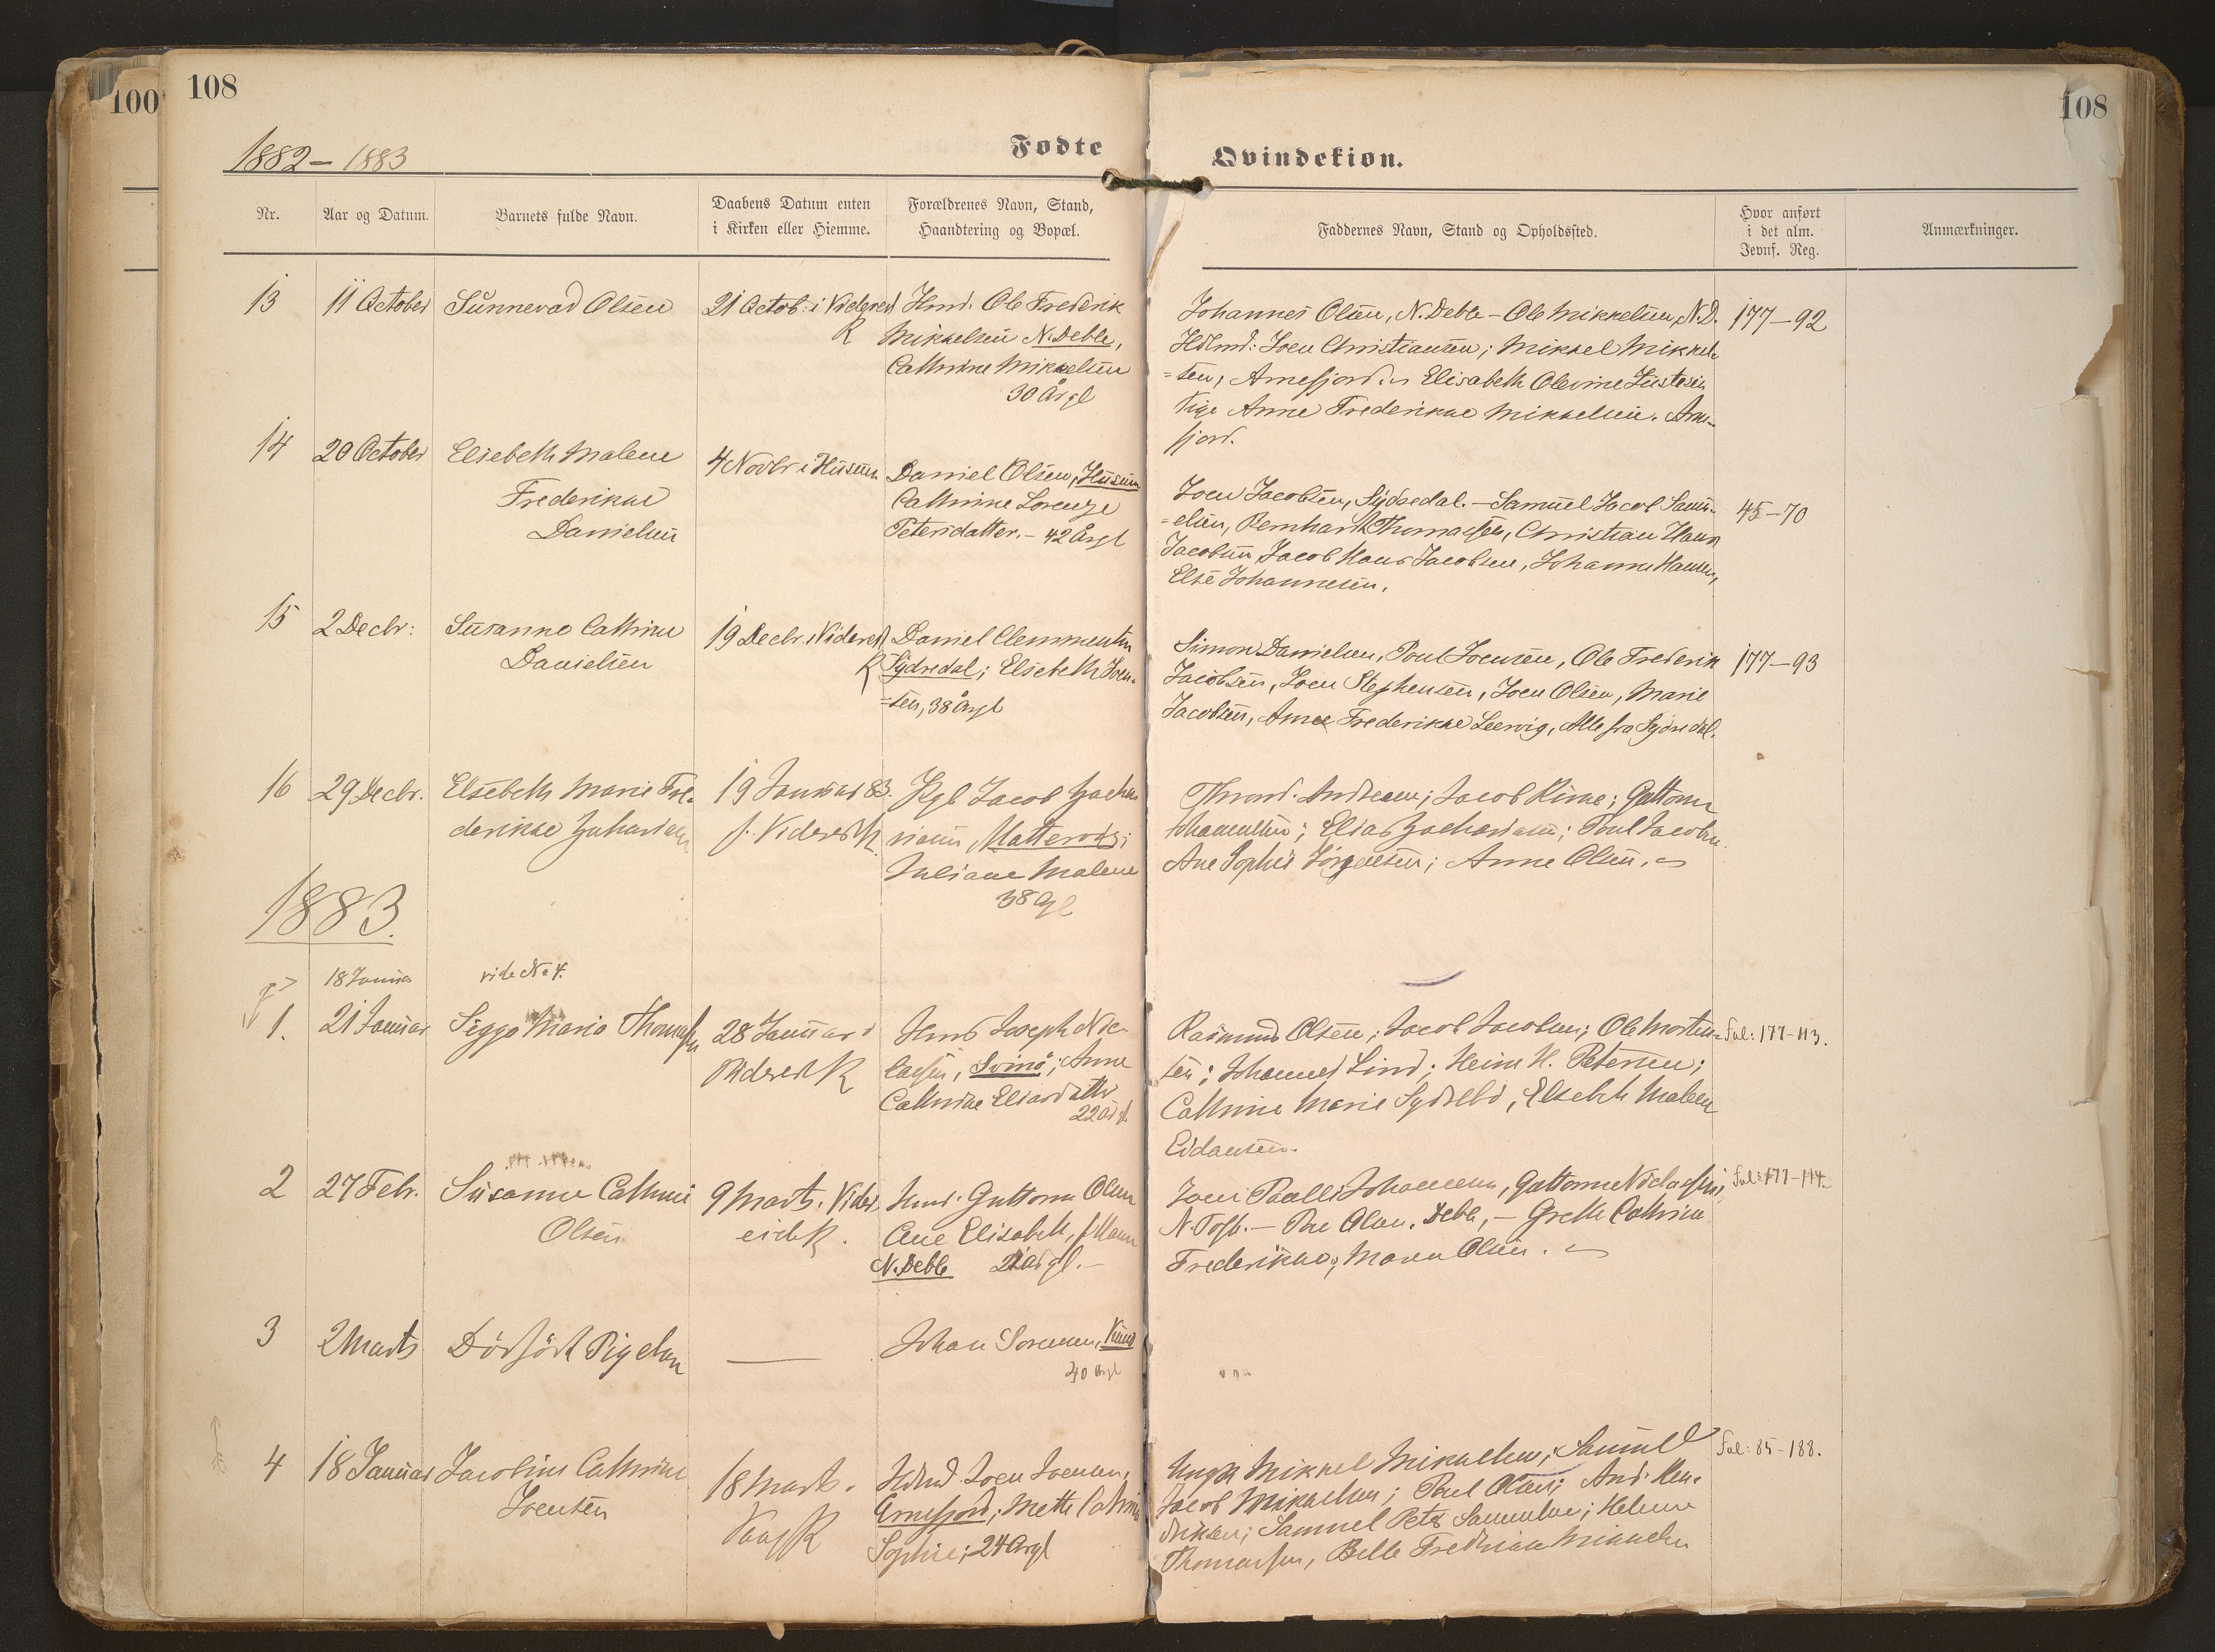 100
108
108
1882 – 1883
Fødte
Qvindekiøn.
Nr.
Aar og Datum.
Barnets fulde Navn.
Daabens Datum enten
i Kirken eller Hiemme.
Forældrenes Navn, Stand,
Haandtering og Bopæl.
Faddernes Navn, Stand og Opholdssted.
Hvor anført
i det alm.
Jevnf. Reg.
Anmærkninger.
13
11 October
Sunnevad Olsen
21 Octob: i Videreid
K
Hmd. Ole Frederik
Mikkelsen N. Deble,
Cathrine Mikkelsen
30 Årgl
Johannes Olsen, N. Deble – Ole Mikkelsen, N.D.
Joen Christiansen; Mikkel Mikkel-
=sen, Arnefjord. Elisabeth Olevine Justesen
Anne Frederikke Mikkelsen. Arne-
fjord.
177–92
14
20 October
Elsebeth Malene
Frederikke
Danielsen
4 Novbr i Husum
Daniel Olsen, Husum
Cathrine Lorenze
Petersdatter. – 42 Årgl
Joen Jacobsen, Sydredal. – Samuel Jacob Samu-
=elsen, Bernhard Thomassen, Christian Hans
Jacobsen, Jacob Hans Jacobsen, Johanne Hansen,
Else Johannesen.
45–70
15
2 Decbr:
Susanne Cathrine
Danielsen
19 Decbr. i Videreid
K
Daniel Clemmentsen
Sydredal; Elsebeth Joen-
=sen, 38 Årgl
Simon Danielsen, Poul Joensen, Ole Frederik
Jacobsen, Joen Stephensen, Joen Olsen, Marie
Jacobsen, Anne Frederikke Leervig, Alle fra Sydredal.
177–93
16
29 Decbr.
Elsebeth Marie Fre-
derikke Zachariasen
19 Januar 83.
i Videreid K.
Jacob Zacha-
riasen Matterodi;
Juliane Malene
38 Årgl
Andreasen; Jacob Kine; Guttorm
Johannesen; Elias Zachariasen; Poul Jacobsen
Ane Sophie Jørgensen; Anne Olsen.
1883.
18 Januar
vide No 4.
1.
21 Januar
Siggo Maria Thomassen
28 Januar i
Videreid K
Hmd Joseph Nic-
lasen, Svinø; Anne
Cathrine Eliasdatter
22 Årgl
Rasmus Olsen; Jacob Jacobsen; Ole Morten-
sen; Johannes Lind; Heine H. Petersen;
Cathrine Marie Sydsebø, Elsebeth Malene
Eidansen.
Fol: 177–113.
2
27 Febr.
Susanne Cathrine
Olsen
9 Marts. Vider-
eid K.
Hmd. Guttorm Olsen
Ane Elisabeth,
N. Deble 21 Årgl. –
Joen Poulli Johannesen, Guttorm Niclassen,
N. Toft. – Olsen, Deble, – Grethe Cathrine
Frederikke; Maren Olsen.
Fol: 177–114.
3
2 Marts
Dødfødt Pigebarn
—
Johan Sorensen, Kunø
40 Årgl
4
18 Januar
Jacobine Cathrine
Joensen
18 Marts.
Vaag K
Joen Joensen,
Arnefjord; Mette Cathrine
Sophie; 24 Årgl
Mikkel Mikkelsen; Samuel
Jacob Mikkelsen; Poul Olsen; And. Hen-
driksen; Samuel Peter Samuelsen; Helene
Thomassen, Belle Fredrikke Mikkelsen
Fol: 85–188.